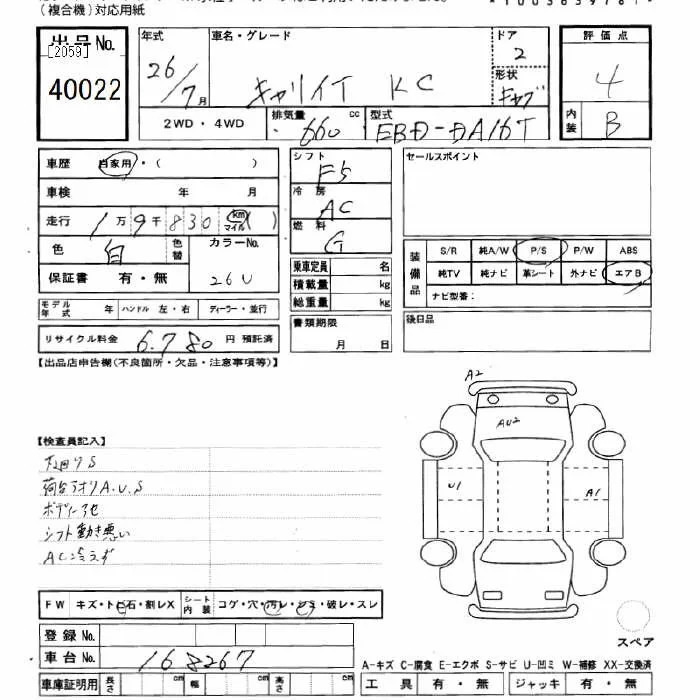 （複合機）対応用紙
出品No.
[2059]
40022
年式
26/7月
車名・グレード
キャリイT KC
ドア
2
形状
キャブ
評価点
4
内装
B
2WD・4WD
排気量
660 cc
型式
EBD-DA16T
車歴 自家用・（ ）
車検 年 月
走行 1万9千830 km マイル ( )
色 白 色替
カラーNo.
26U
保証書 有・無
モデル年式 年 ハンドル 左・右 ディーラー・並行
リサイクル料金 6,780 円 預託済
シフト
F5
冷房
AC
燃料
G
乗車定員 名
積載量 kg
総重量 kg
書類期限
月 日
セールスポイント
装備品
S/R 純A/W P/S P/W ABS
純TV 純ナビ 革シート 外ナビ エアB
ナビ型番：
後日品
【出品店申告欄（不良箇所・欠品・注意事項等）】
【検査員記入】
下回りS
荷台アオリA.U.S
ボディーアセ
シフト動き悪い
AC冷えず
A2
AU2
U1
A1
スペア
FW キズ・トビ石・割レX
シート内装 コゲ・穴・汚レ・シミ・破レ・スレ
登録No.
車台No. 168267
車庫証明用 長さ cm 幅 cm 高さ cm
A-キズ C-腐食 E-エクボ S-サビ U-凹ミ W-補修 XX-交換済
工具 有・無 ジャッキ 有・無